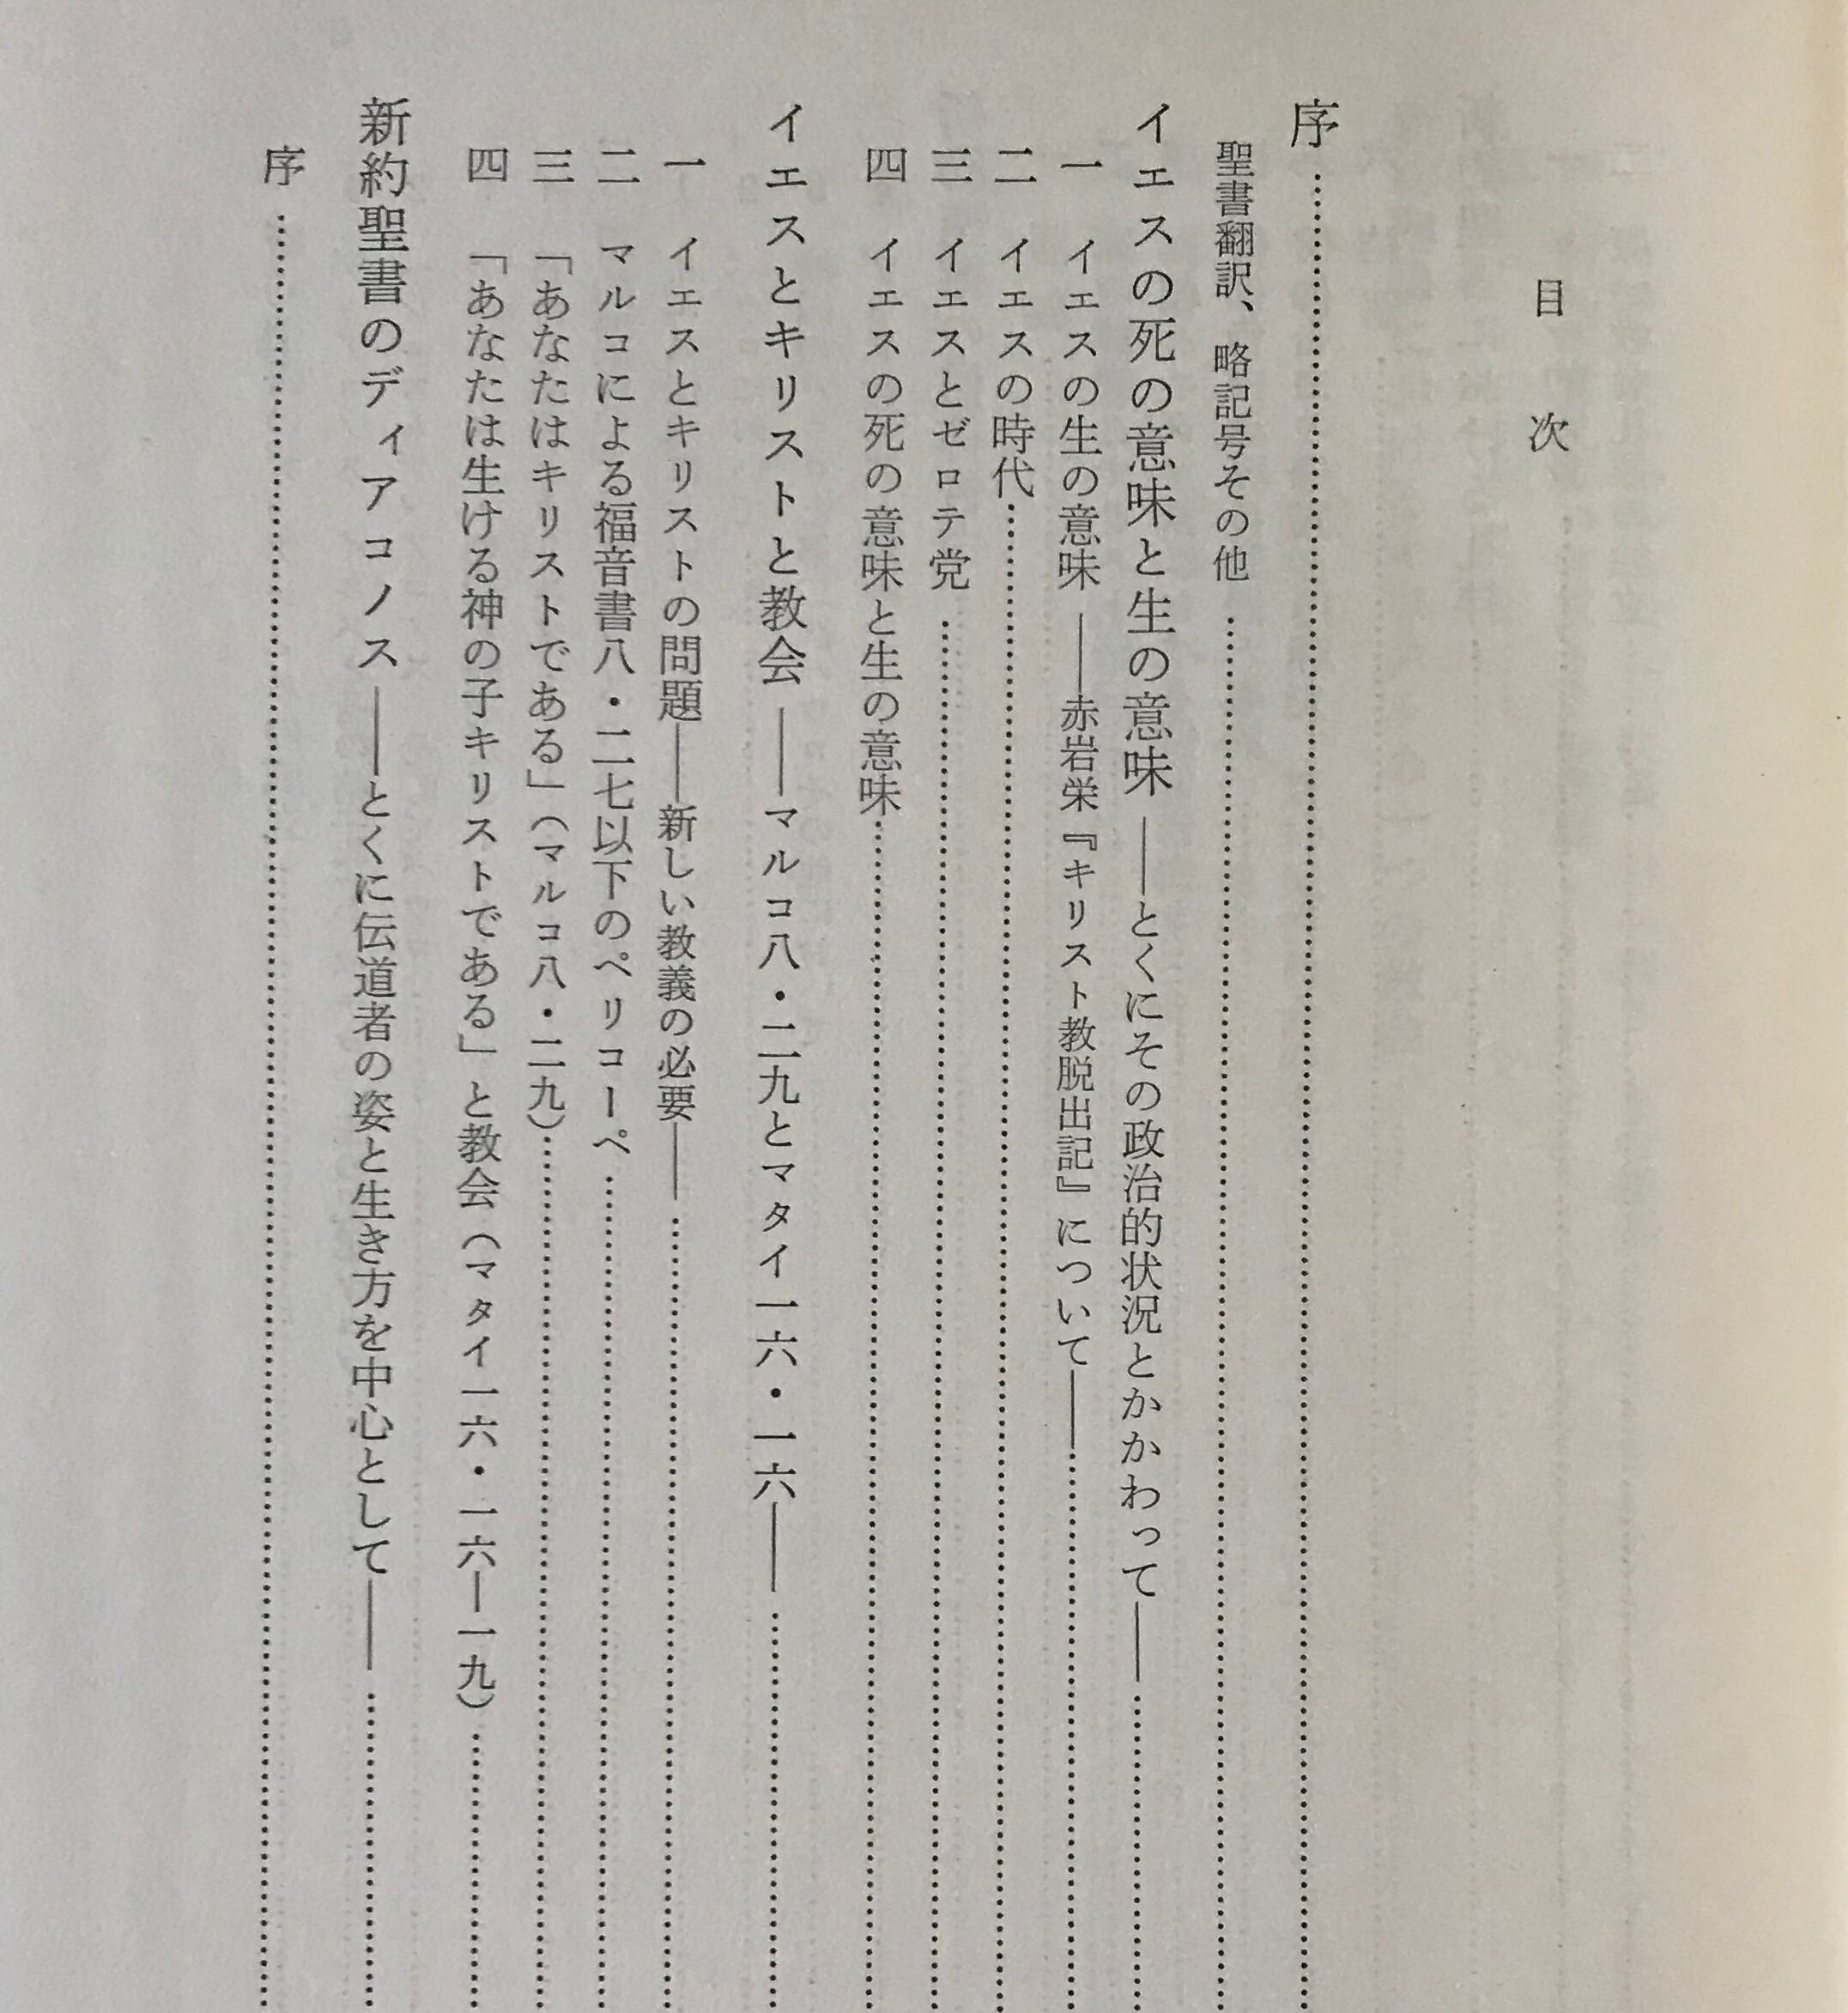 目次
序……………………
聖書翻訳、略記号その他……………………
イエスの死の意味と生の意味――とくにその政治的状況とかかわって――……………………
一 イエスの生の意味――赤岩栄『キリスト教脱出記』について――……………………
二 イエスの時代……………………
三 イエスとゼロテ党……………………
四 イエスの死の意味と生の意味……………………
イエスとキリストと教会――マルコ八・二九とマタイ一六・一六――……………………
一 イエスとキリストの問題――新しい教義の必要――……………………
二 マルコによる福音書八・二七以下のペリコーペ……………………
三 「あなたはキリストである」(マルコ八・二九)……………………
四 「あなたは生ける神の子キリストである」と教会(マタイ一六・一六―一九)……………………
新約聖書のディアコノス――とくに伝道者の姿と生き方を中心として――……………………
序……………………